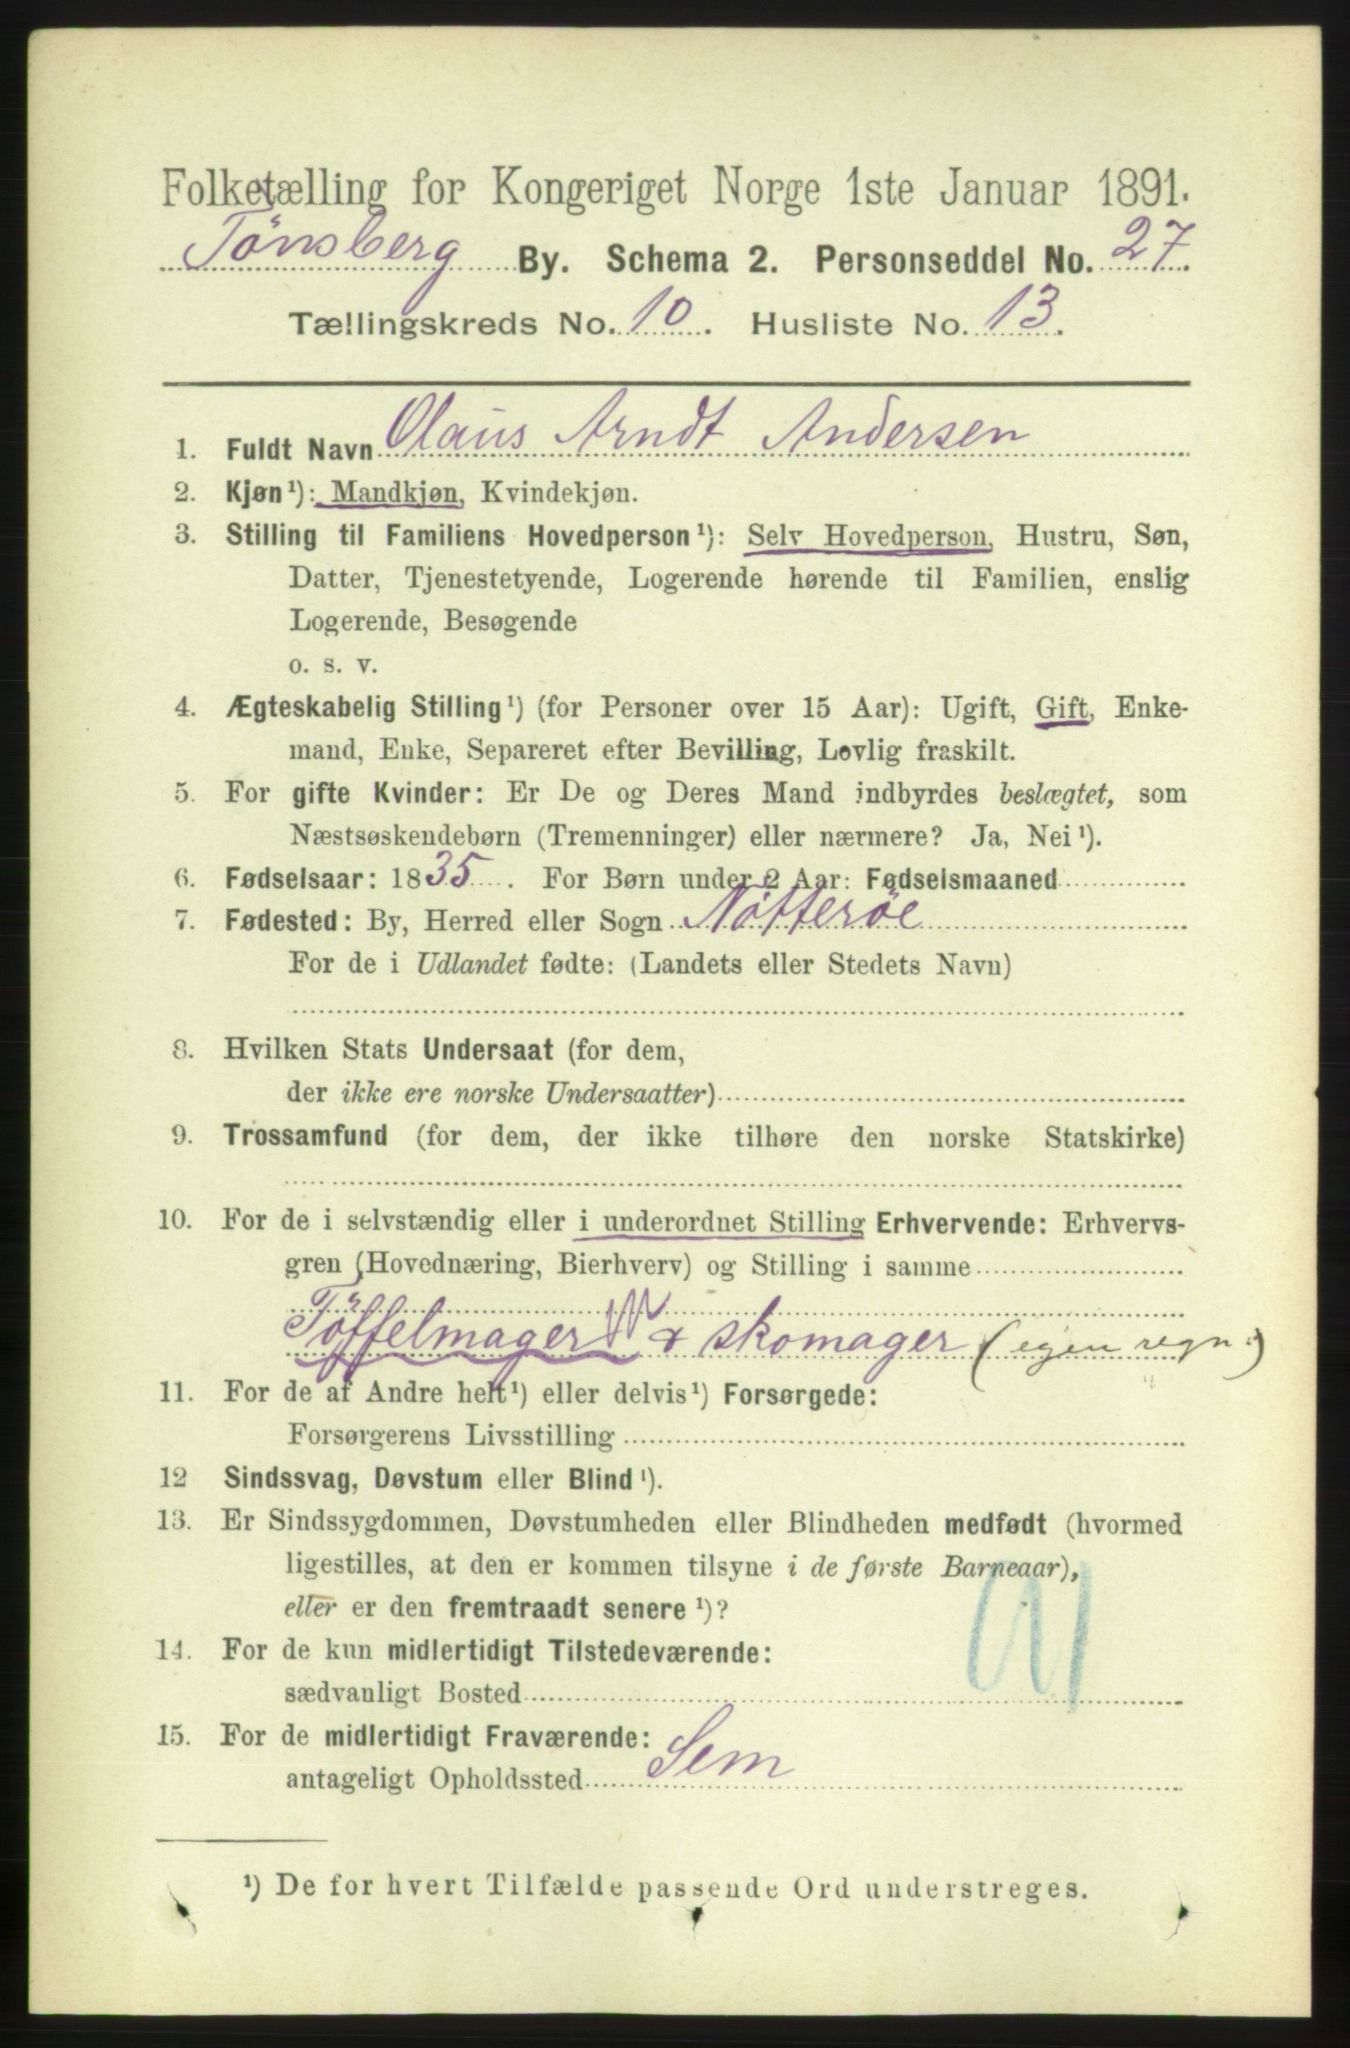 Folketælling for Kongeriget Norge 1ste Januar 1891.
Tönsberg By. Schema 2. Personseddel No. 27.
Tællingskreds No. 10. Husliste No. 13.
1. Fuldt Navn Olaus Arndt Andersen
2. Kjøn¹): Mandkjøn, Kvindekjøn.
3. Stilling til Familiens Hovedperson¹): Selv Hovedperson, Hustru, Søn,
Datter, Tjenestetyende, Logerende hørende til Familien, enslig
Logerende, Besøgende
o. s. v.
4. Ægteskabelig Stilling¹) (for Personer over 15 Aar): Ugift, Gift, Enke-
mand, Enke, Separeret efter Bevilling, Lovlig fraskilt.
5. For gifte Kvinder: Er De og Deres Mand indbyrdes beslægtet, som
Næstsøskendebørn (Tremenninger) eller nærmere? Ja, Nei¹).
6. Fødselsaar: 1835. For Børn under 2 Aar: Fødselsmaaned
7. Fødested: By, Herred eller Sogn Nötteröe
For de i Udlandet fødte: (Landets eller Stedets Navn)
8. Hvilken Stats Undersaat (for dem,
der ikke ere norske Undersaatter)
9. Trossamfund (for dem, der ikke tilhøre den norske Statskirke)
10. For de i selvstændig eller i underordnet Stilling Erhvervende: Erhvervs-
gren (Hovednæring, Bierhverv) og Stilling i samme
Töffelmager & skomager (egen regn:)
11. For de af Andre helt¹) eller delvis¹) Forsørgede:
Forsørgerens Livsstilling
12 Sindssvag, Døvstum eller Blind¹).
13. Er Sindssygdommen, Døvstumheden eller Blindheden medfødt (hvormed
ligestilles, at den er kommen tilsyne i de første Barneaar),
eller er den fremtraadt senere¹)?
14. For de kun midlertidigt Tilstedeværende:
sædvanligt Bosted
15. For de midlertidigt Fraværende:
antageligt Opholdssted Sem
¹) De for hvert Tilfælde passende Ord understreges.